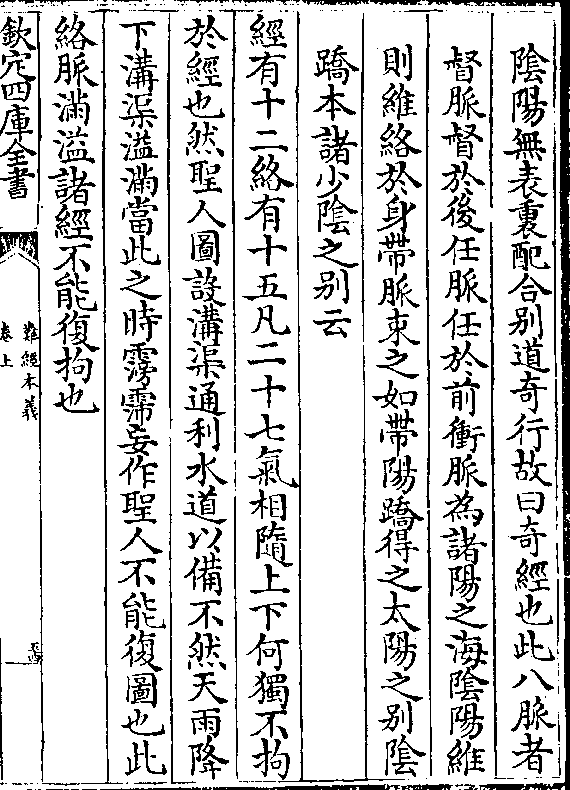 陰陽無表裏配合别道奇行故曰奇經也此八脈者
督脈督於後任脈任於前衝脈為諸陽之海陰陽維
則維絡於身帶脈束之如帶陽蹻得之太陽之别陰
蹻本諸少陰之别云
經有十二絡有十五凡二十七氣相隨上下何獨不拘
於經也然聖人圖設溝渠通利水道以備不然天雨降
下溝渠溢滿當此之時霶霈妄作聖人不能復圖也此
絡脈滿溢諸經不能復拘也
欽定四庫全書
難經本義
卷上